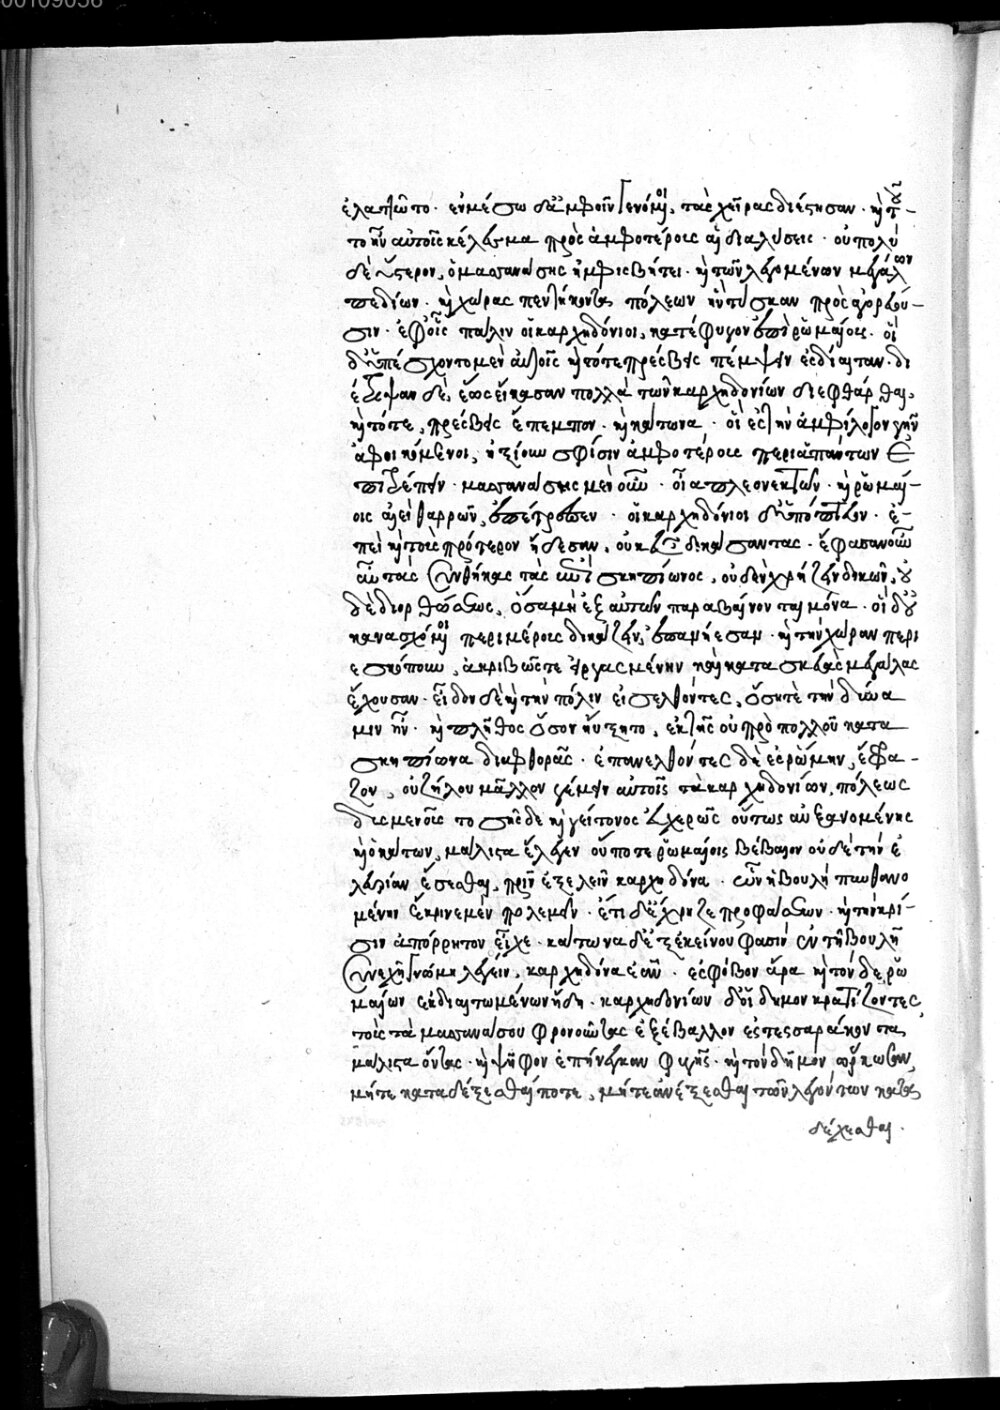 ἐλαττῶτο · ἐν μέσω δ' ἀμφοῖν γενόμενοι, τὰς χεῖρας διέτησαν · καὶ τοῦ-
το ἦν αὐτοῖς κέλευσμα πρὸς ἀμφοτέροις αἱ διαλύσεις · οὐ πολὺ
δὲ ὕστερον, ὁ μασσανάσσης ἠμφισβήτει · καὶ τῶν λεγομένων μεγάλων
πεδίων · καὶ χώρας πεντήκοντα πόλεων ἣν τύσκαν προσαγορεύου-
σιν · ἐφ' οἷς πάλιν οἱ καρχηδόνιοι, κατέφυγον ἐπὶ ῥωμαίοις · οἱ
δ' ὑπέσχοντο μὲν αὐτοῖς καὶ τότε πρέσβεις πέμψειν ἐς δίαιταν · δι
έτριψαν δὲ, ἕως εἴκασαν πολλὰ τῶν καρχηδονίων διεφθάρθαι,
καὶ τότε, πρέσβεις ἔπεμπον · καὶ κάτωνα · οἳ ἐς τὴν ἀμφίλογον γῆν
ἀφικόμενοι, ἠξίουν σφίσιν ἀμφοτέροις περὶ ἁπάντων ἐ
πιτρέπειν · μασσανάσσης μὲν οὖν · οἷα πλεονεκτῶν · καὶ ῥωμαί-
οις ἀεὶ θαρρῶν, ἐπέτρεπεν · οἱ καρχηδόνιοι δ' ὑπόπτευον · ἐ-
πεὶ καὶ τοὺς πρότερον ἤδεσαν, οὐκ εὖ δικάσαντας · ἔφασαν οὖν
αὖ τὰς συνθήκας τὰς ἐπὶ σκηπίωνος, οὐδὲν χρήζειν δικῶν, οὐ
δὲ διορθώσεως, ὅσα μὴ ἐξ αὐτῶν παραβαίνονται μόνα · οἱ δ' οὐ
κ ἀνασχόμενοι περὶ μέροις δικάζειν, ἐπανῄεσαν · καὶ τὴν χώραν περι
εσκόπουν, ἀκριβῶς τε εἰργασμένην καὶ κατασκευὰς μεγάλας
ἔχουσαν · εἶδον δὲ καὶ τὴν πόλιν εἰσελθόντες, ὅση τε τὴν δύνα
μιν ἦν · καὶ πλῆθος ὅσον ηὔξητο, ἐκ τῆς οὐ πρὸ πολλοῦ κατὰ
σκηπίωνα διαφθορᾶς · ἐπανελθόντες δὲ ἐς ῥώμην, ἔφρα-
ζον, οὐ ζήλου μᾶλλον γέμειν αὐτοῖς τὰ καρχηδονίων, πόλεως
δυσμενοῦς τοσῆσδε καὶ γείτονος εὐχερῶς οὕτως αὐξανομένης
καὶ ὁ κάτων, μάλιστα ἔλεγεν οὔποτε ῥωμαίοις βέβαιον οὐδὲ τὴν ἐ
λευθερίαν ἔσεσθαι, πρὶν ἐξελεῖν καρχηδόνα · ὧν ἡ βουλὴ πυνθανο
μένη ἔκρινε μὲν πολεμεῖν · ἔτι δ' ἔχρῃζε προφάσεων · καὶ τὴν κρί-
σιν ἀπόρρητον εἶχε · κάτωνα δ' ἐξ ἐκείνου φασὶν ἐν τῇ βουλῇ
συνεχεῖ γνώμη λέγειν, καρχηδόνα ἐᾶν · ἐς φόβον ἄρα καὶ τόνδε ῥω
μαίων ἐκδιαιτωμένων ἤδη · καρχηδονίων δ' οἱ δημοκρατίζοντες,
τοὺς τὰ μασσανάσσου φρονοῦντας ἐξέβαλλον ἐς τεσσαράκοντα
μάλιστα ὄντας · καὶ ψῆφον ἐπήνεγκαν φυγῆς · καὶ τὸν δῆμον ὥρκωσαν
μήτε καταδέξεσθαί ποτε, μήτε ἀνέξεσθαι τῶν λεγόντων κατα
δέχεσθαι.